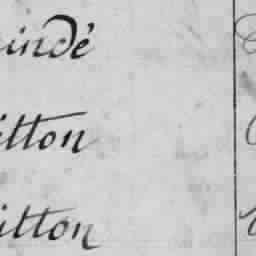 indé
itton
itton